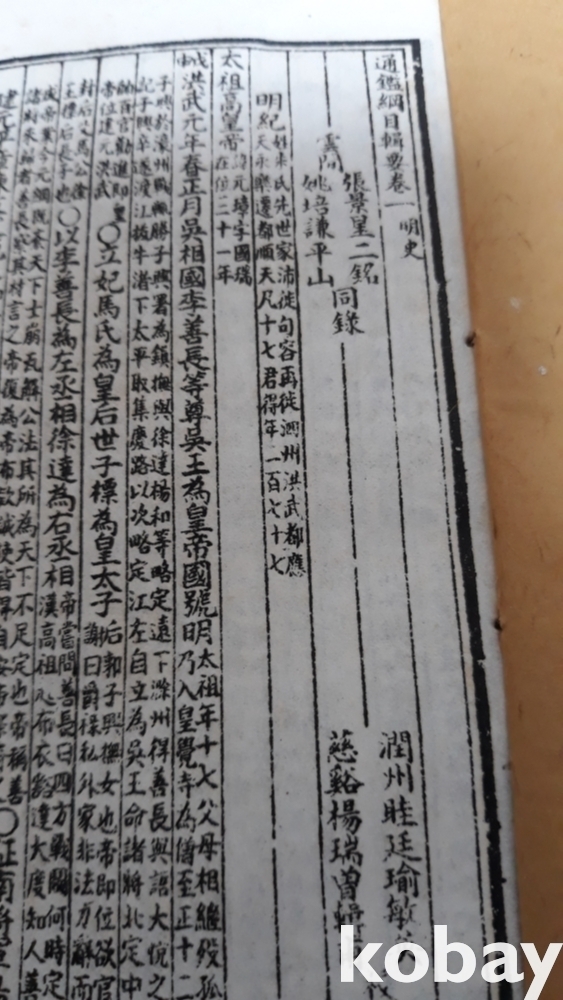 通鑑綱目輯要卷一 明史
雲間
張景星二銘
姚培謙平山
同錄
潤州眭廷瑜敏
慈谿楊瑞曾輯
明紀
姓朱氏先世家沛徙句容再徙泗州洪武都應
天永樂遷都順天凡十七君得年一百七十七
太祖高皇帝
諱元璋字國瑞
在位三十一年
洪武元年春正月吳相國李善長等尊吳王為皇帝國號明
太祖年十七父母相繼歿孤
乃入皇覺寺為僧至正十二
子興於濠州戰勝子興署為鎮撫與徐達楊和等略定遠下滁州得善長與語大悅之
記子興卒遂渡江拔牛渚下太平取集慶路以次略定江左自立為吳王命諸將北定中
帥百官勸進即皇
帝位建元洪武
〇立妃馬氏為皇后世子標為皇太子
后郭子興撫女也帝即位欲官
謝曰爵祿私外家非法力辭而
封后父馬公徐
王標后長子也
〇以李善長為左丞相徐達為右丞相
帝嘗問善長曰四方戰鬪何時定
漢高祖以布衣豁達大度知人善
成帝業今元綱既紊天下土崩瓦解公法其所為天下不足定也帝稱善
kobay